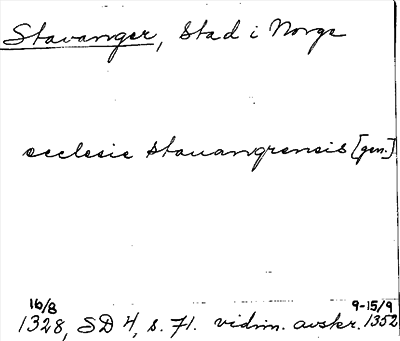 Stavanger, Stad i Norge
ecclesie stauangrensis [gen.]
16/8 9-15/9
1328, SD 4, s. 71. vidim. avskr. 1352